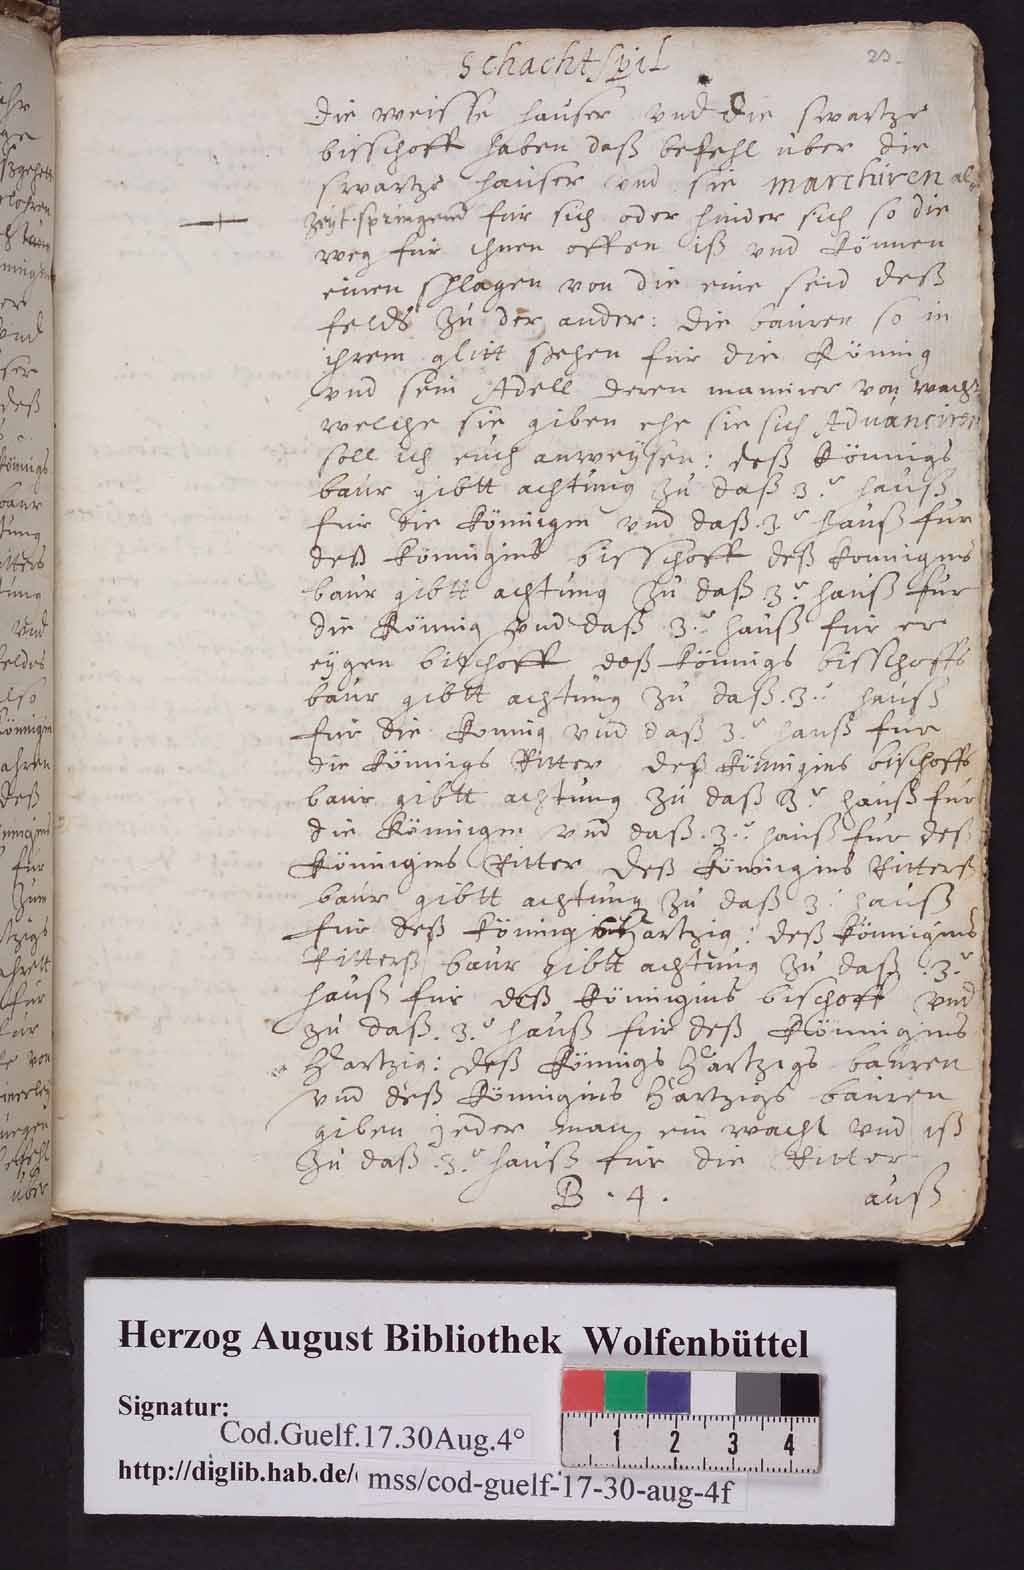 Schacht spil
23.
die weisse hauser vnd die swartze
bisschoff haben daß befehl uber die
swartze hauser vnd sie marchiren al-
zeyt springend fur sich oder hinder sich so die
weg fur ihnen offen iß vnd können
einen schlagen von die eine seid deß
felds zu der ander: die bauren so in
ihrem glitt stehen fur die Könnig
vnd sein Adell deren mannier von wach-
welche sie giben ehe sie sich Aduanciren
soll ich euch anweysen: deß Könnigs
baur gibtt achtung zu daß 3.e hauß
fur die Könnigin vnd daß .3.e hauß fur
deß Könnigins bisschoff deß Konnigins
baur gibtt achtung zu daß 3.e hauß fur
die Könnig vnd daß .3.e hauß fur er
eygen bisschoff deß Könnigs bisschoffs
baur gibtt achtung zu daß .3.e hauß
fur die Konnig vnd daß 3.e hauß fur
die Könnigs Ritter deß Könnigins bischoffs
baur gibtt achtung zu daß 3.e hauß fur
die Könnigin vnd daß .3.e hauß fur deß
Könnigins Ritter deß Könnigins Ritterß
baur gibtt achtung zu daß 3. hauß
fur deß Könnig Hartzig: deß Könnigins
Ritterß baur gibtt achtung zu daß .3.e
hauß fur deß Könnigins bischoff vnd
zu daß .3.e hauß fur deß Könnigins
Hartzig: deß Könnigs Hartzigs bauren
vnd deß Könnigins Hartzigs bauren
giben jeder man ein wacht vnd iß
zu daß .3.e hauß fur die Ritter
B . 4 .
auß
Herzog August Bibliothek Wolfenbüttel
Signatur:
Cod.Guelf.17.30Aug.4°
1 2 3 4
http://diglib.hab.de/
mss/cod-guelf-17-30-aug-4f